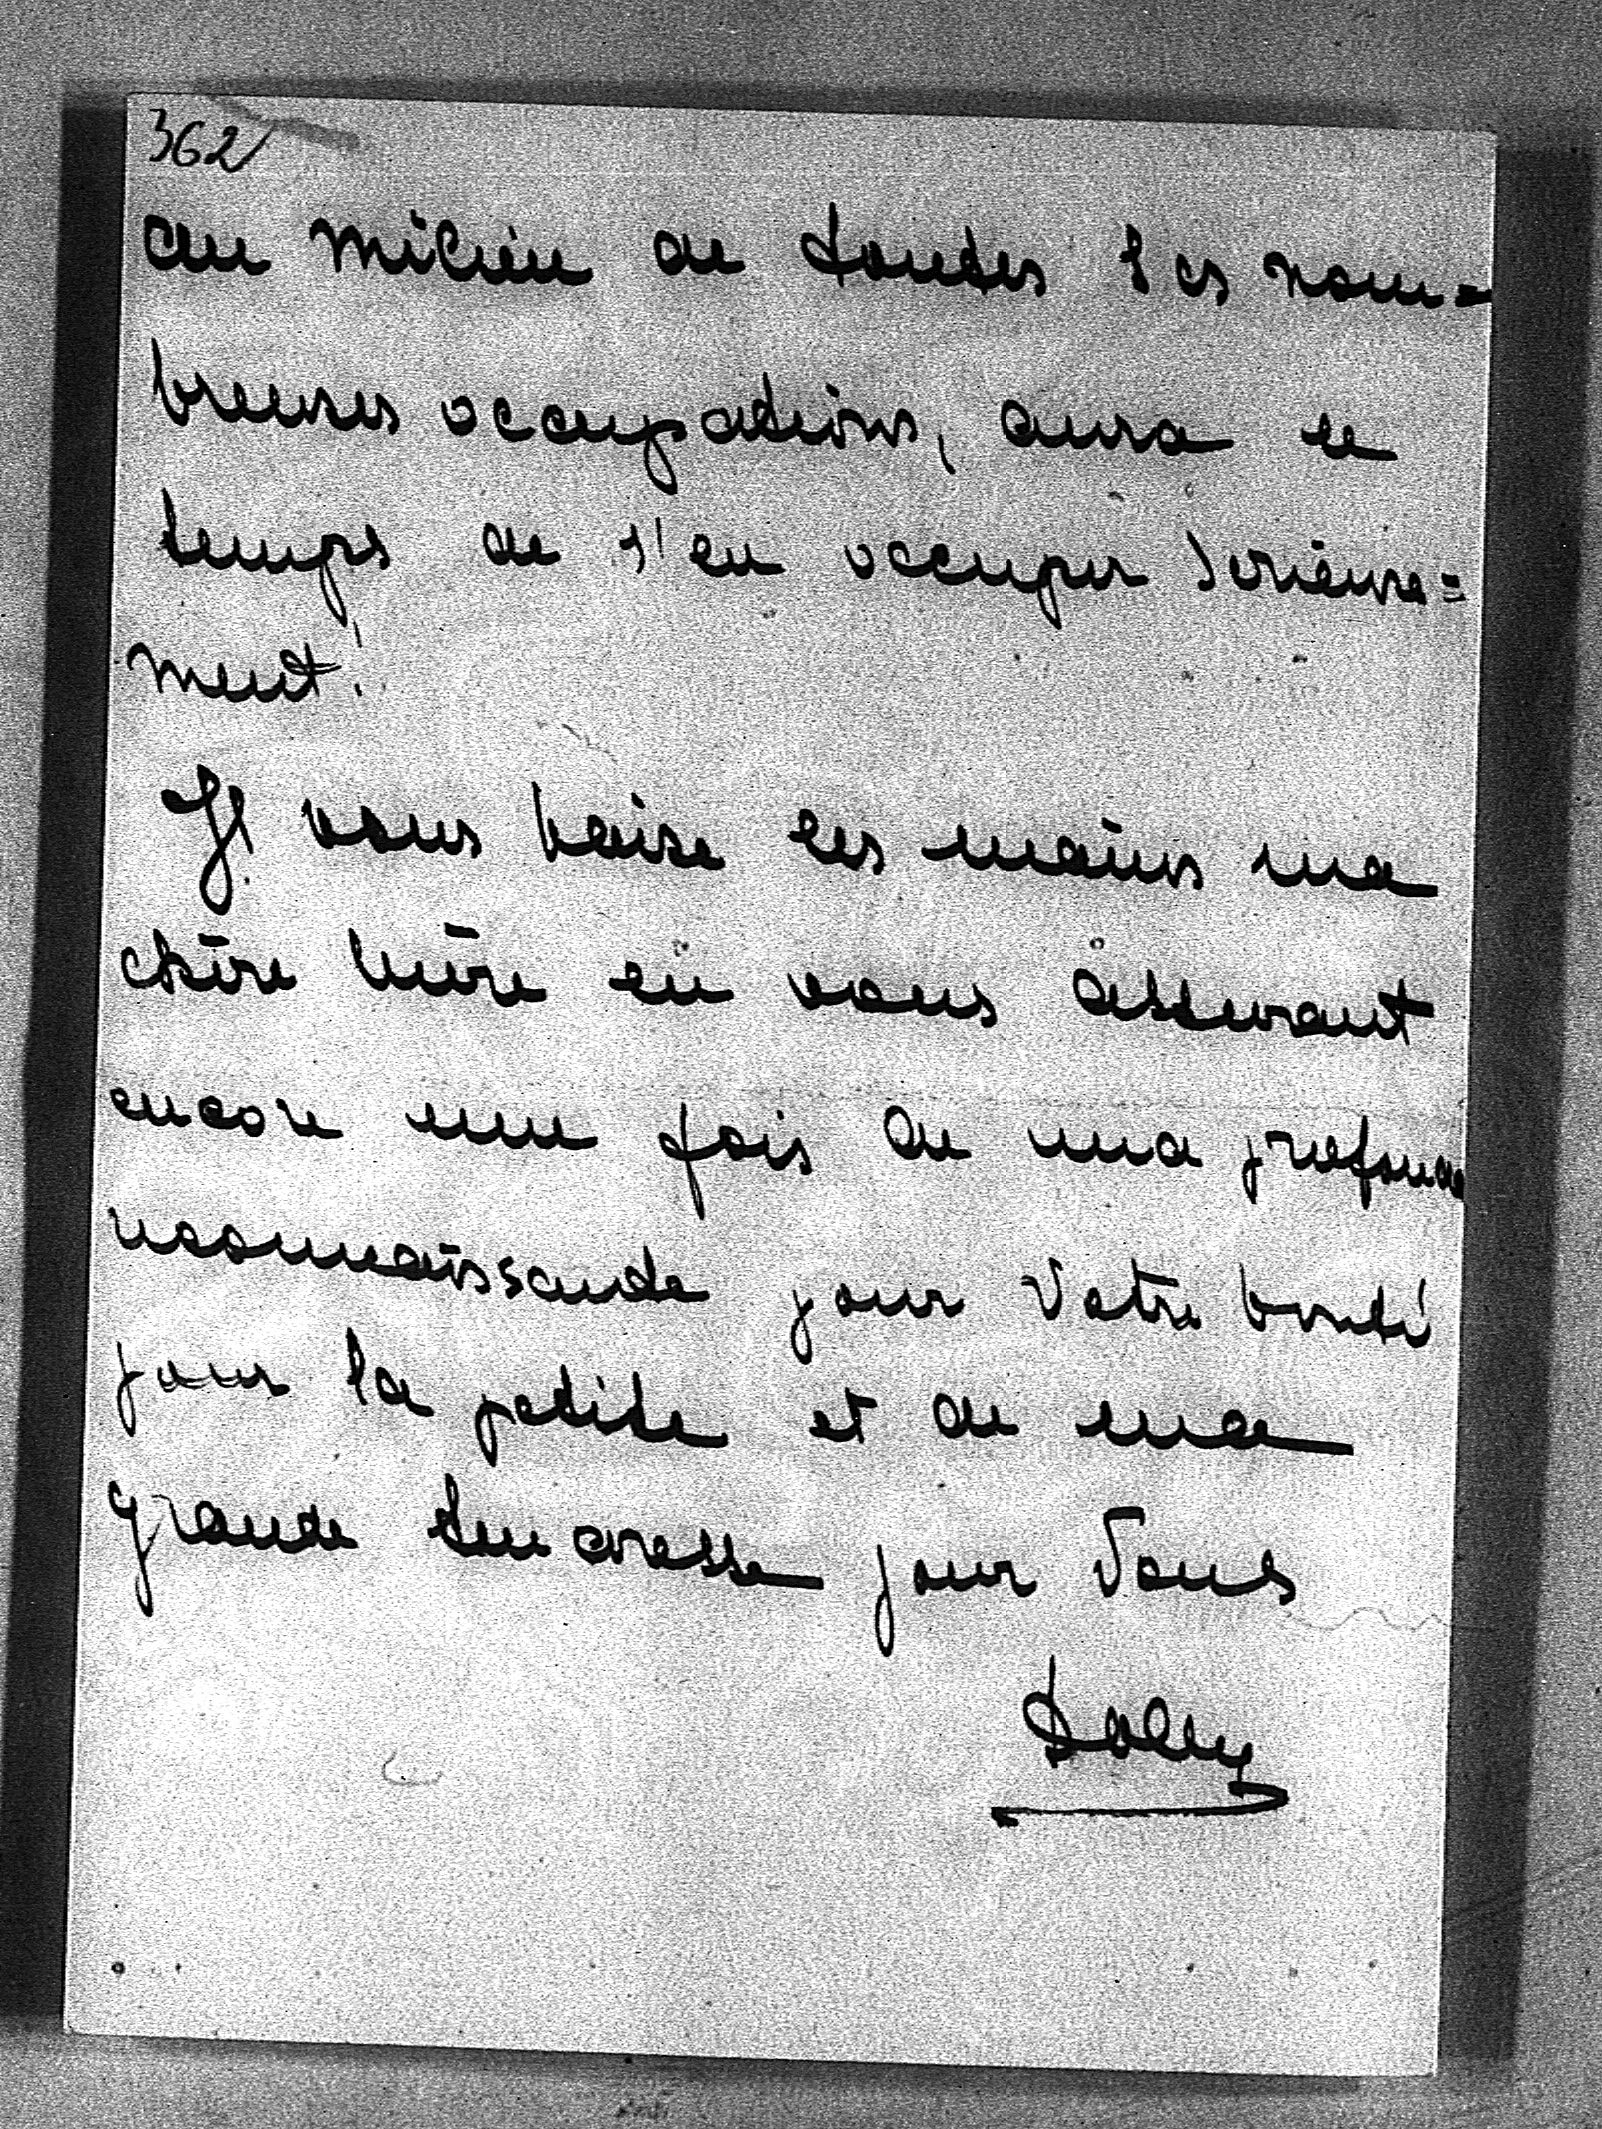 362
au milieu de toutes ses nom=
breuses occupations, aura le
temps de s'en occuper serieuse=
ment!
Je vous baise les mains ma
chère Mère en vous assurant
encore une fois de ma profonde
reconnaissance pour Votre bonté
pour la petite et de ma
grande tendresse pour Vous
Dolly